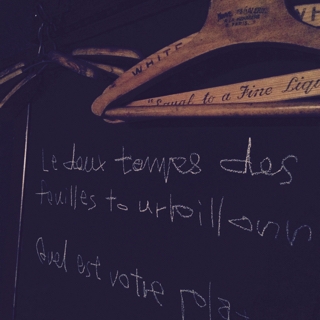 WHITE
WH
"Equal to a Fine Liqu
Le deux temps des
feuilles tourbillonn
Quel est votre pla